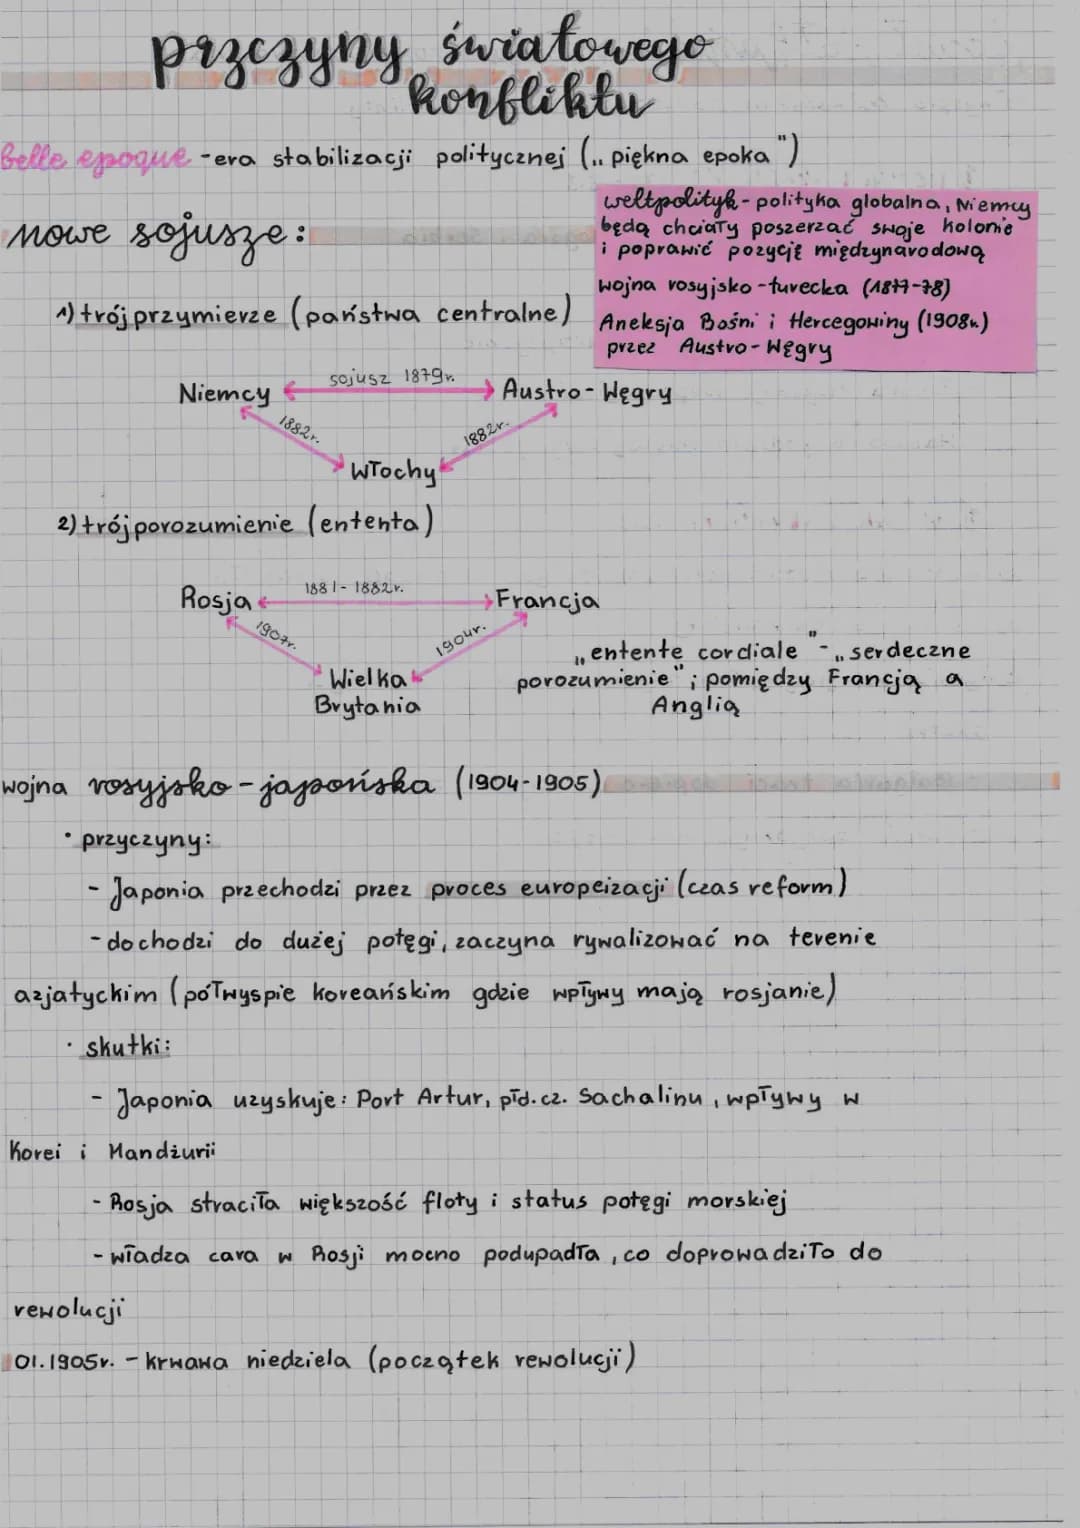 przczyny światowego
konfliktu
belle epoque - era stabilizacji politycznej („ piękna epoka ")
weltpolityk - polityka globalna, Niemcy
będą chciały poszerzać swoje kolonie
i poprawić pozycję międzynarodową
wojna rosyjsko - turecka (1877-78)
Aneksja Bośni i Hercegowiny (1908r.)
przez Austro - Węgry
nowe sojusze:
1) trójprzymierze (państwa centralne)
sojusz 1879r.
Niemcy Austro - Węgry
1882r. 1882r.
Włochy
2) trójporozumienie (ententa)
1881 - 1882r.
Rosja Francja
1907r. 1904r.
Wielka
Brytania
„ entente cordiale " - „ serdeczne
porozumienie" ; pomiędzy Francją a
Anglią
wojna rosyjsko - japońska (1904-1905)
• przyczyny:
- Japonia przechodzi przez proces europeizacji (czas reform)
- dochodzi do dużej potęgi, zaczyna rywalizować na terenie
azjatyckim (półwyspie koreańskim gdzie wpływy mają rosjanie)
• skutki:
- Japonia uzyskuje: Port Artur, płd. cz. Sachalinu, wpływy w
Korei i Mandżurii
- Rosja straciła większość floty i status potęgi morskiej
- władza cara w Rosji mocno podupadła, co doprowadziło do
rewolucji
01.1905r. - krwawa niedziela (początek rewolucji)